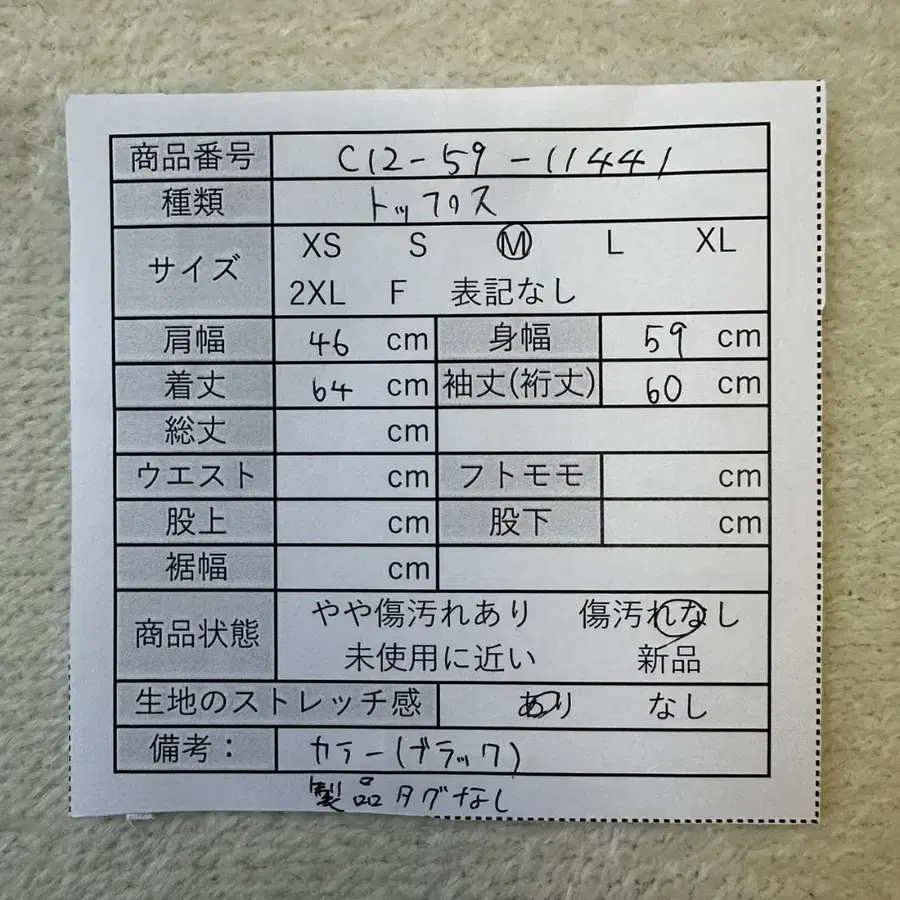 商品番号 C12-59-11441
種類 トップス
サイズ XS S M L XL
2XL F 表記なし
肩幅 46 cm 身幅 59 cm
着丈 64 cm 袖丈(裄丈) 60 cm
総丈 cm
ウエスト cm フトモモ cm
股上 cm 股下 cm
裾幅 cm
商品状態 やや傷汚れあり 傷汚れなし
未使用に近い 新品
生地のストレッチ感 あり なし
備考： カラー(ブラック)
製品タグなし